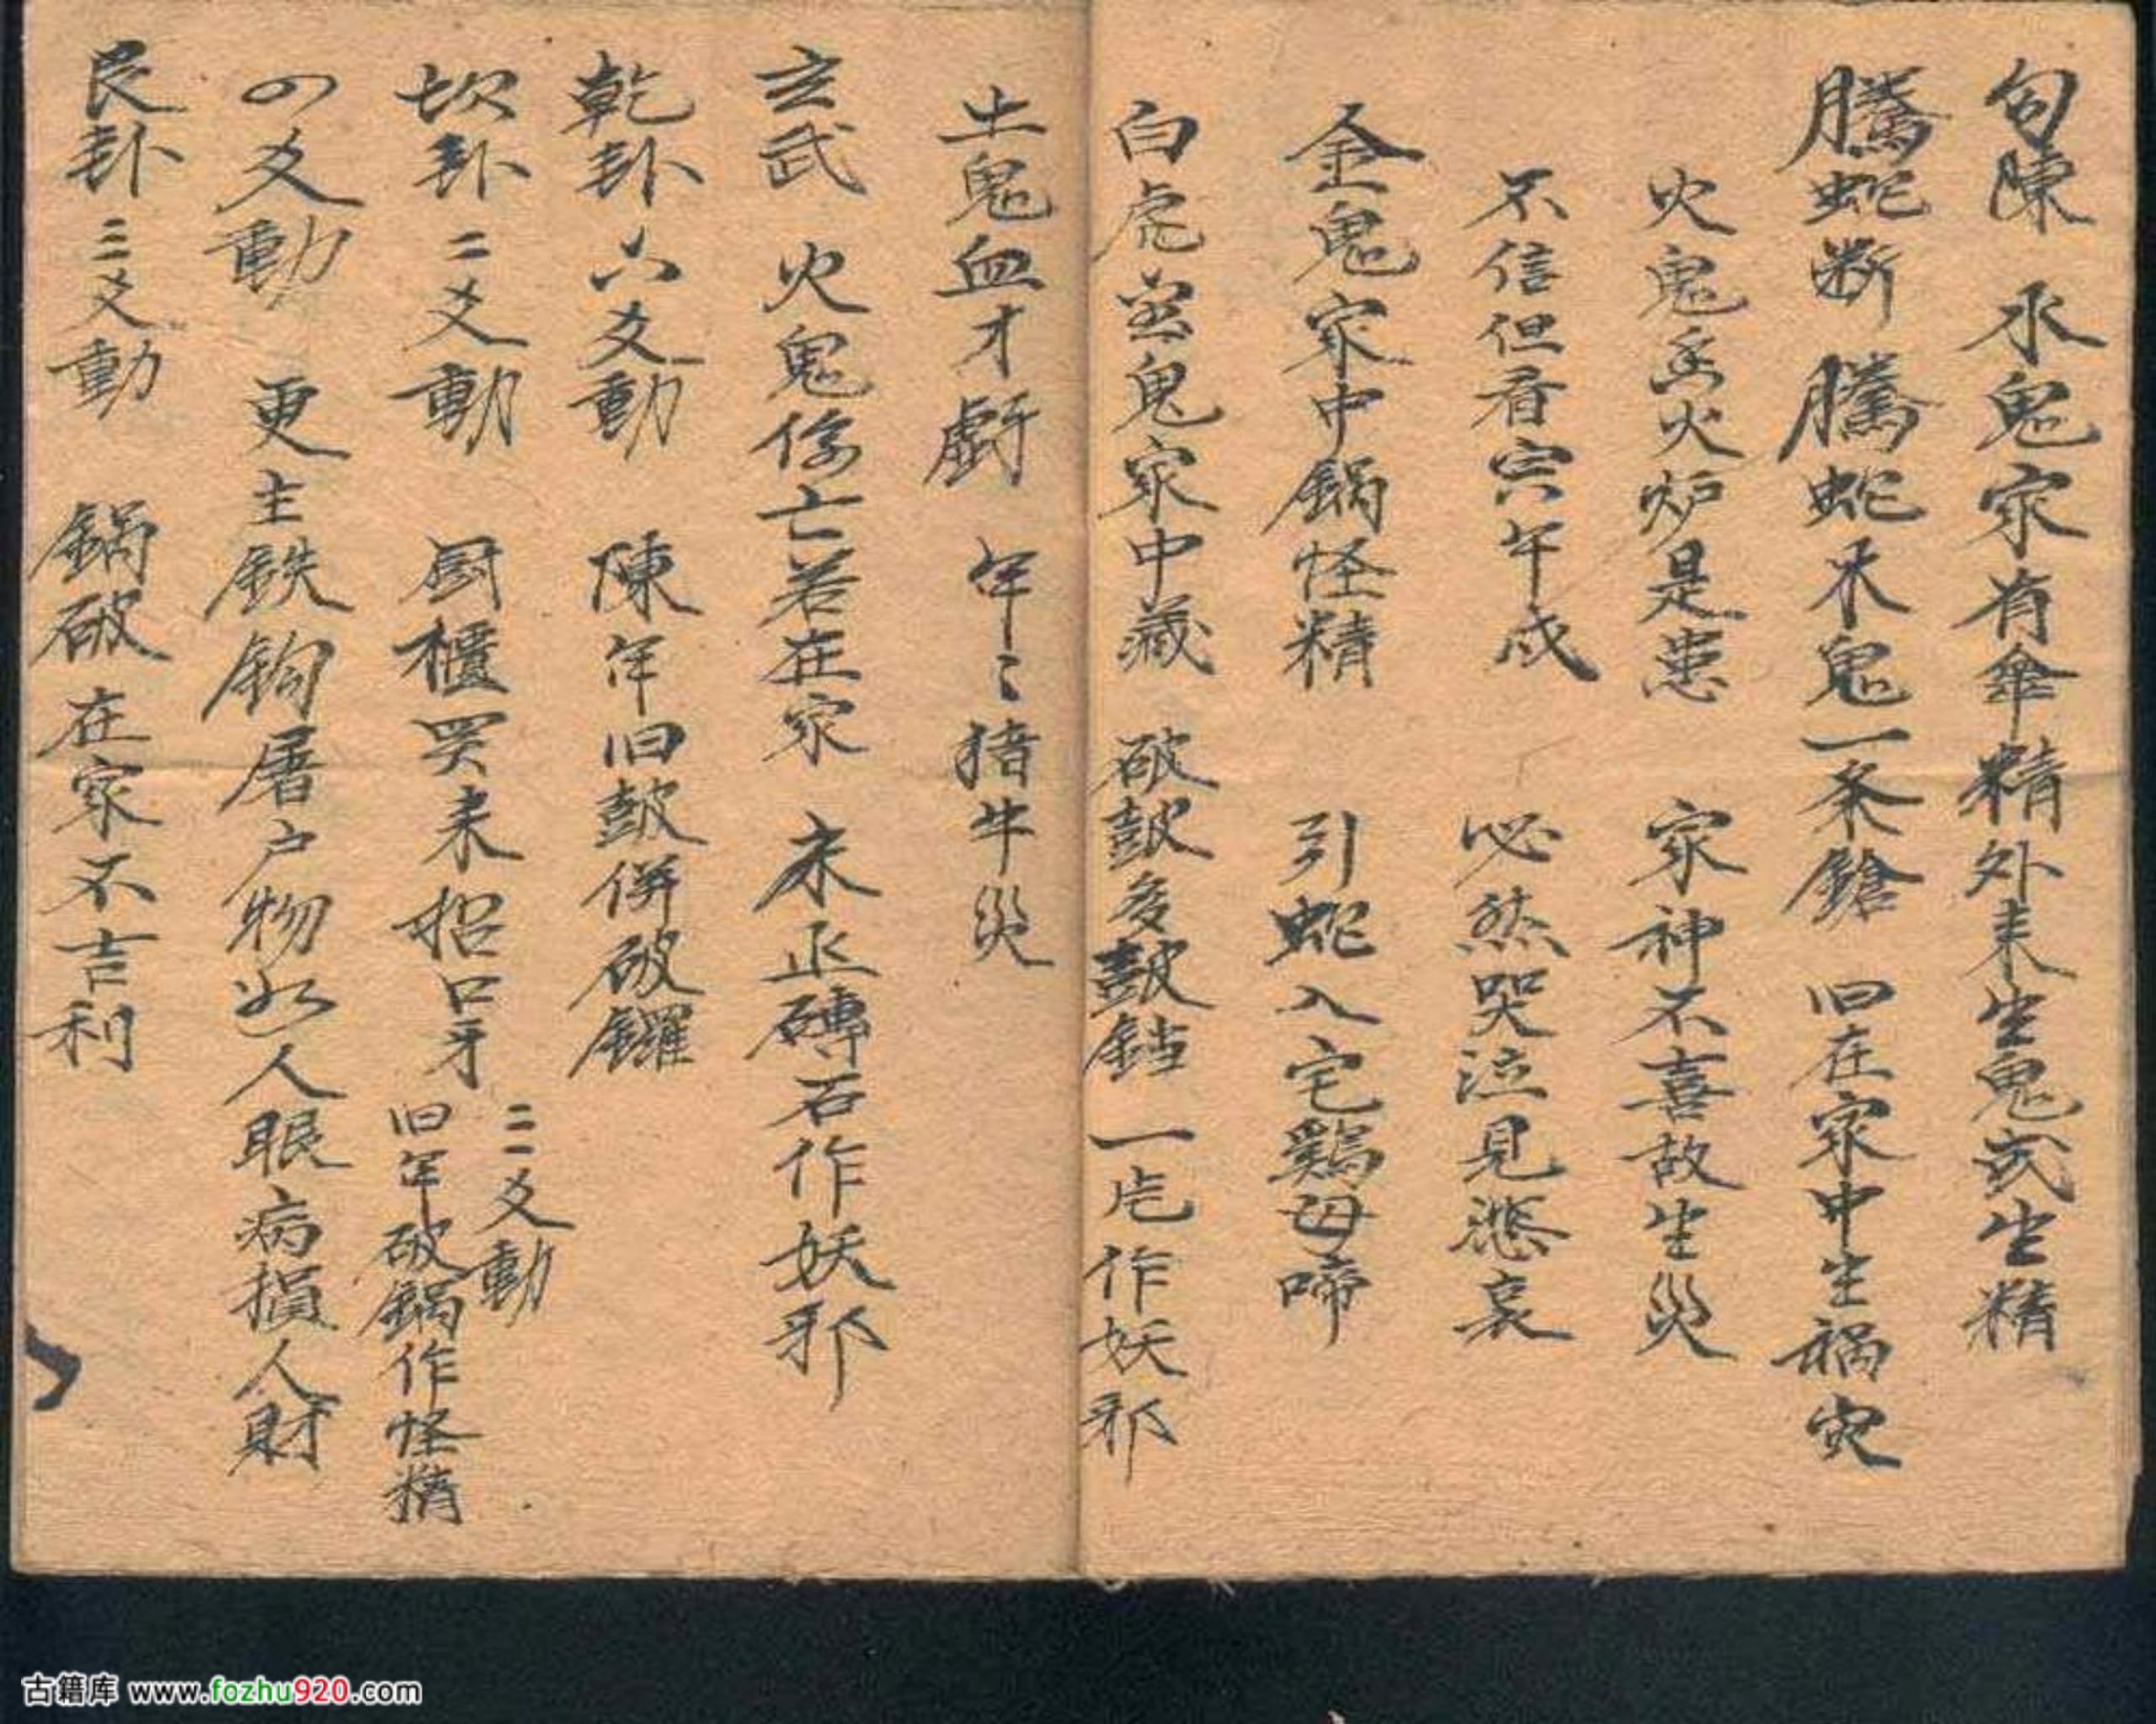 勾陳 水鬼家有傘精外来生鬼武生精
騰蛇断 騰蛇木鬼一条鎗 旧在家中生禍灾
火鬼火炉是患 家神不喜故生災
不信但看午戌 必然哭泣見悲哀
金鬼家中鍋怪精 引蛇入宅鷄母啼
白虎鬼家中藏 破鼓多鼓 一作妖邪
土鬼血才 年〻猪牛災
玄武 火鬼亡若在家 磚石作妖邪
乾卦六爻動 陳年旧鼓併破鑼
坎卦二爻動 厨櫃哭来招口牙 三爻動 旧年破鍋作怪精
四爻動 更主鉄鈎屠户物 人眼病損人財
艮卦三爻動 鍋破在家不吉利
古籍库 www.fozhu920.com